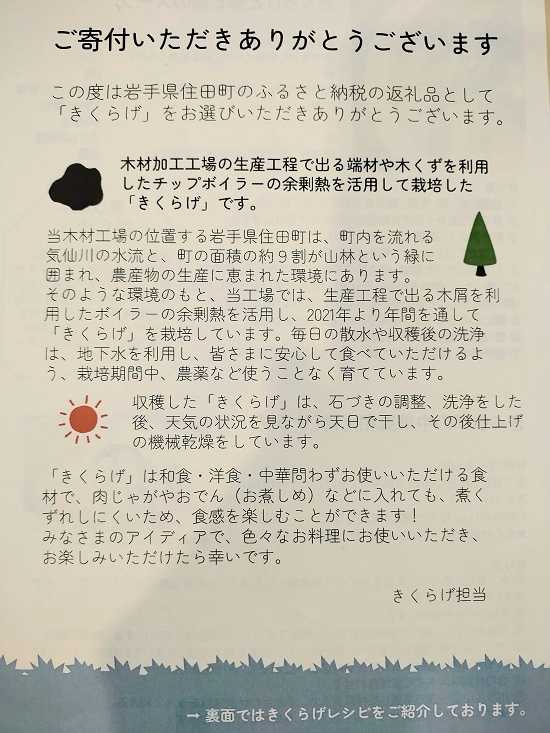 ご寄付いただきありがとうございます
この度は岩手県住田町のふるさと納税の返礼品として
「きくらげ」をお選びいただきありがとうございます。
木材加工工場の生産工程で出る端材や木くずを利用
したチップボイラーの余剰熱を活用して栽培した
「きくらげ」です。
当木材工場の位置する岩手県住田町は、町内を流れる
気仙川の水流と、町の面積の約９割が山林という緑に
囲まれ、農産物の生産に恵まれた環境にあります。
そのような環境のもと、当工場では、生産工程で出る木屑を利
用したボイラーの余剰熱を活用し、2021年より年間を通して
「きくらげ」を栽培しています。毎日の散水や収穫後の洗浄
は、地下水を利用し、皆さまに安心して食べていただけるよ
う、栽培期間中、農薬など使うことなく育てています。
収穫した「きくらげ」は、石づきの調整、洗浄をした
後、天気の状況を見ながら天日で干し、その後仕上げ
の機械乾燥をしています。
「きくらげ」は和食・洋食・中華問わずお使いいただける食
材で、肉じゃがやおでん（お煮しめ）などに入れても、煮く
ずれしにくいため、食感を楽しむことができます！
みなさまのアイディアで、色々なお料理にお使いいただき、
お楽しみいただけたら幸いです。
きくらげ担当
→ 裏面ではきくらげレシピをご紹介しております。